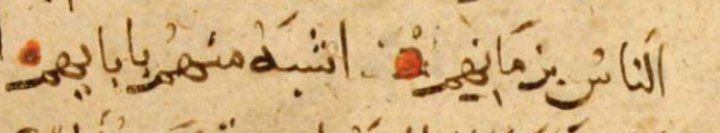 الناس بزمانهم اشبه منهم بابايهم